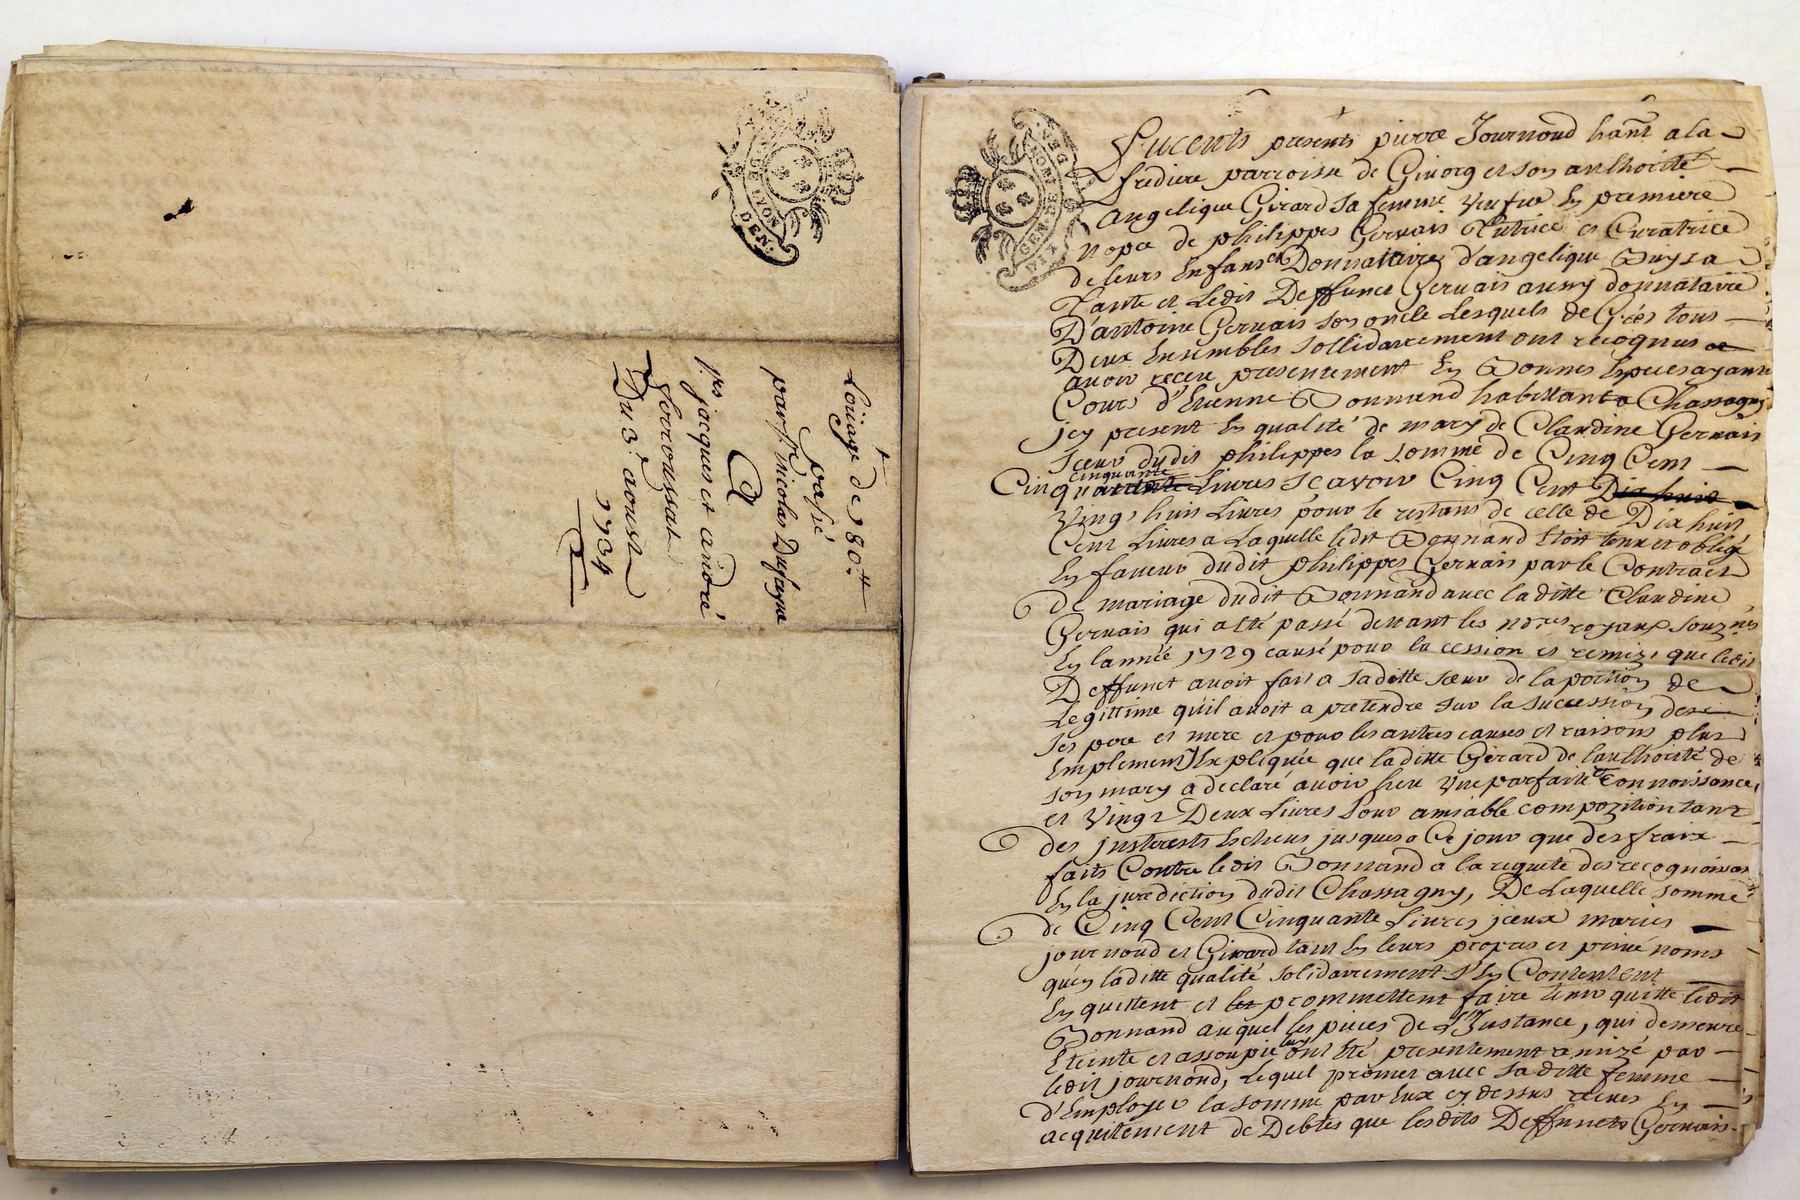 Loüage de 180ᵗᵗ
passé
par sʳ nicolas Dufayne
A
jʳˢ jacques et andré
ferroussat
Du 3ᵉ aoust
1734
GEN. DE LYON
DEN.
GEN. DE LYON
DIX DEN.
Furents presents pierre Journoud habnt a la
fredière parroisse de Givors et son authorité
angelique Girard sa femme veufve En premiere
nopce de philippes Gervais Tutrice et Curatrice
de leurs Enfans et Donnataire d'angelique
Tante et Ledit Deffunct Gervais aussy donnataire
D'antoine Gervais son oncle Lesquels de Grés tous
Deux Ensembles sollidairement ont recognus
avoir receu presentement En Bonnes Especes ayant
Cours d'Etienne Bonnand habittant a Chassagny
jcy present En qualité de mary de Claudine Gervais
sœur dudit philippes la somme de Cinq Cent
Cinquante Livres sçavoir Cinq Cent Dix huit
cinquante
Vingt huit Livres pour le restant de celle de Dix huit
Cent Livres a Laquelle ledit Bonnand Etoit tenu et obligé
En faveur dudit philippes Gervais par le Contract
de mariage dudit Bonnand avec laditte Claudine
Gervais qui a été passé devant les noʳᵉˢ royaux souznés
En lannée 1729 causé pour la cession et remize que ledit
Deffunct avoit fait a saditte sœur de la portion de
Legittime qu'il avoit a pretendre sur la succession de
ses pere et mere et pour les autres causes et raisons plus
Emplement Expliquée que laditte Girard de lauthorité de
son mary a declaré avoir heu une parfaitte Connoissance,
et Vingt Deux Livres pour amiable compozition tant
des jnterests Echeus jusques a Ce jour que des fraix
faits Contre ledit Bonnand a la requete des recognoissant
En la juridiction dudit Chassagny, De Laquelle somme
de Cinq Cent Cinquante Livres jceux mariés
journoud et Girard tant En leurs propres et privé noms
qu'en laditte qualité solidairement s'En Contentent
En quittent et promettent faire tenir quitte ledit
Bonnand auquel les pieces de L'Instance, qui demeure
Eteinte et assoupie ont été presentement remizé par
luy
ledit journoud, Lequel promet avec saditte femme
d'Employer la somme par Eux cy dessus receue En
acquittement de Debtes que lesdits Deffuncts Gervais